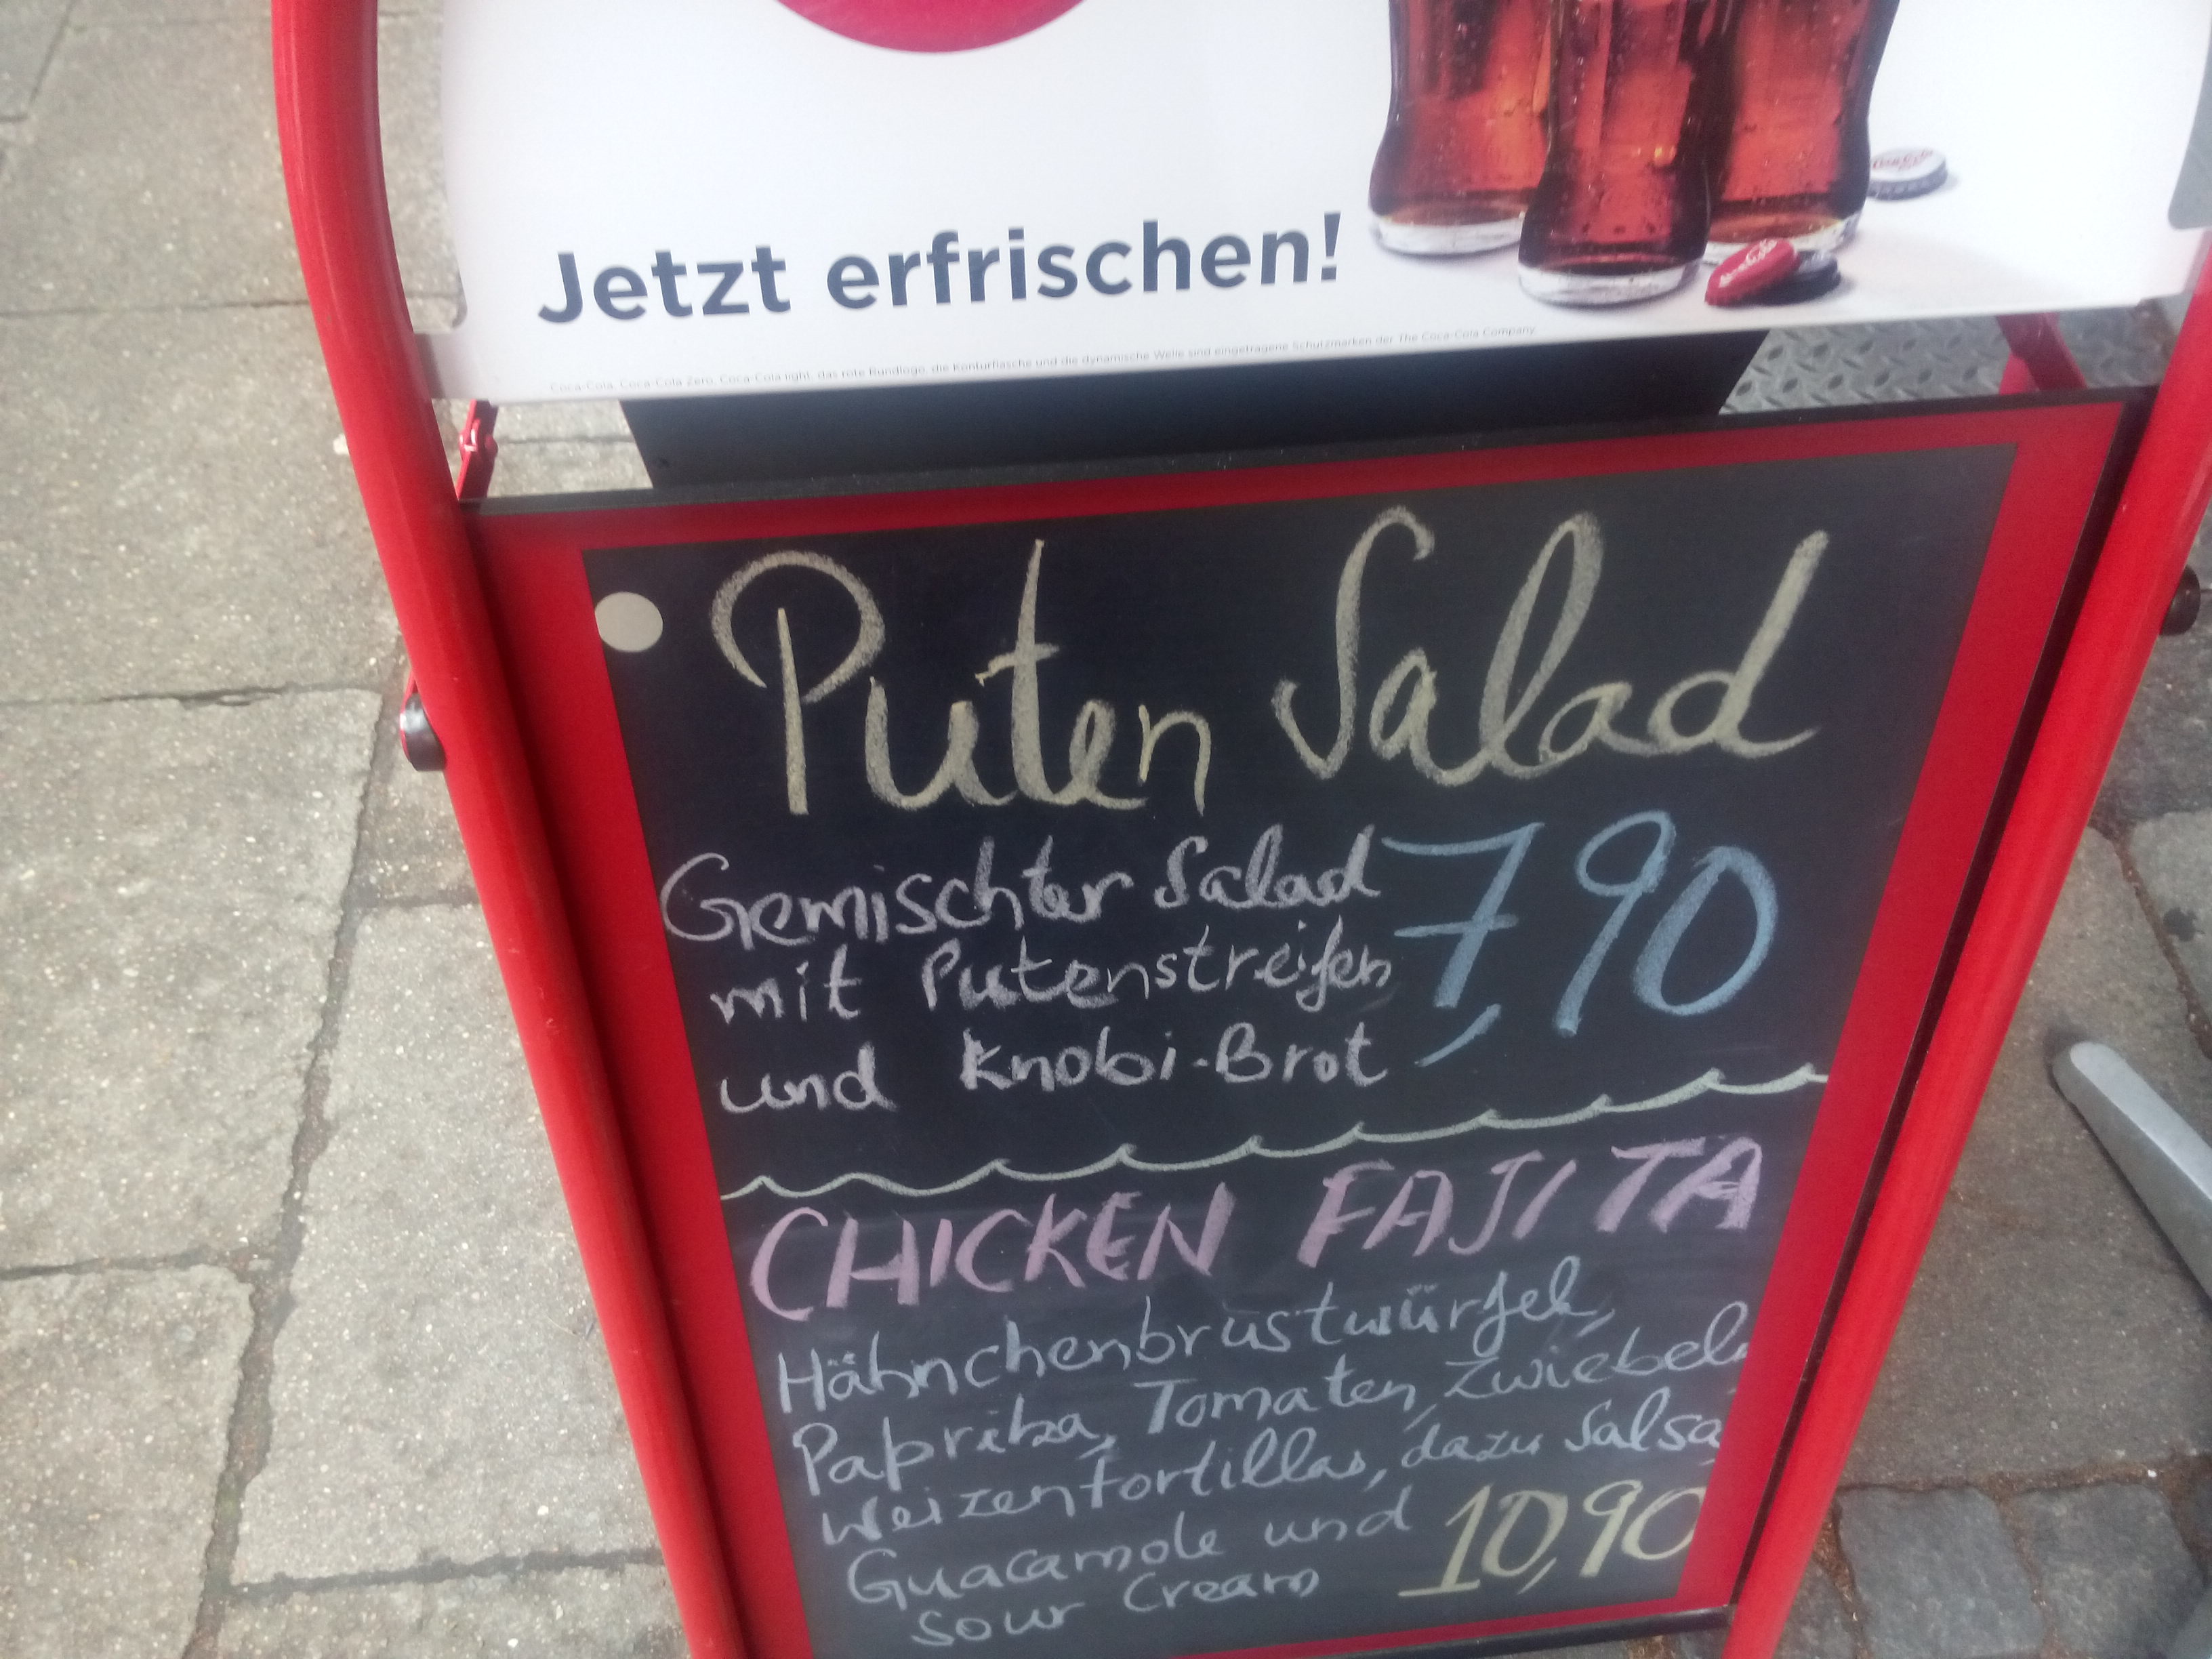 Jetzt erfrischen!
Coca-Cola, Coca-Cola Zero, Coca-Cola light, das rote Rundlogo, die Konturflasche und die dynamische Welle sind eingetragene Schutzmarken der The Coca-Cola Company.
Puten Salad
Gemischter Salad
mit Putenstreifen
und Knobi-Brot
7,90
CHICKEN FAJITA
Hähnchenbrustwürfel,
Paprika, Tomaten, Zwiebel,
Weizentortillas, dazu Salsa,
Guacamole und
Sour Cream
10,90